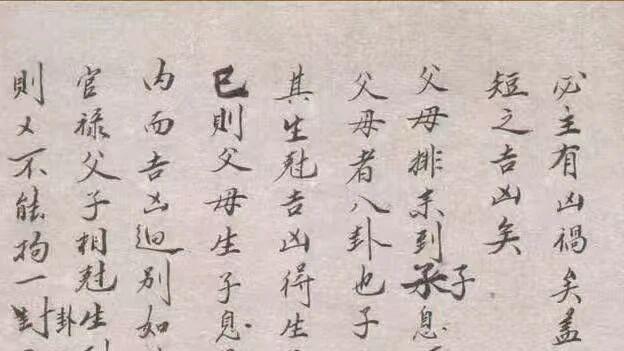 必主有凶禍矣盖
短之吉凶矣
父母排来到子息
父母者八卦也子
其生尅吉凶得生
已則父母生子息
内而吉凶迥别如
官禄父子相尅生
則又不能拘一卦